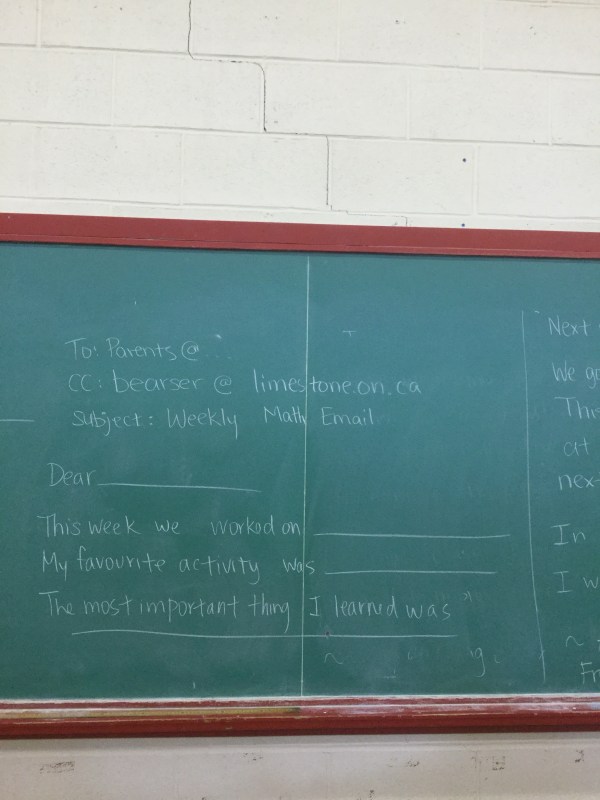 To: Parents@...
CC: bearser@limestone.on.ca
Subject: Weekly Math Email
Dear__________
This week we worked on__________
My favourite activity was__________
The most important thing I learned was
Next
We
This
at
In
I